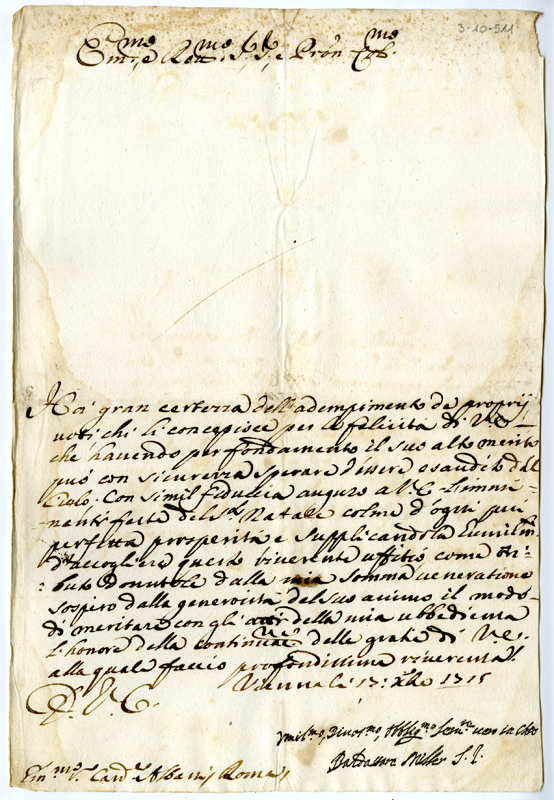 3-10-511
Em:mo e Reu:mo S:r S:r e Pron Col:mo
Há gran certezza dell'adempimento de proprij
uoti chi li concepisce per la felicità di V.E.
che hauendo per fondamento il suo alto merito
può con sicurezza sperare d'essere esaudito dal
Cielo. Con simil fiducia auguro a V.E. l'immi=
nenti feste del S.to Natale colme d'ogni più
perfetta prosperità e supplicandola humilm.te
d'accogliere questo riuerente uffitio come tri=
buto douutole dalla mia somma ueneratione
sospiro dalla generosità del suo animo il modo
di meritare con gli atti della mia ubbedienza
l'honore della continua.ne delle gratie di V.E.
alla quale faccio profondissima riuerenza.
Vienna li 17: Xbre 1715
D. V. E.
Vmil.mo, Diuot.mo, Obblig.mo Seru.re uero in Chro
Baldassare Miller S. I.
Em:mo S.r Card.e Albani Roma